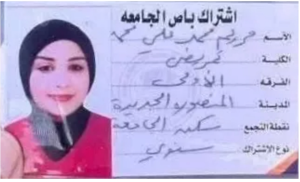 اشتراك باص الجامعه
الأسم مريم محمد علي محمد
الكلية تمريض
الفرقه الأولى
المدينة المنصورة الجديدة
نقطة التجمع سكن الجامعة
نوع الأشتراك سنوي